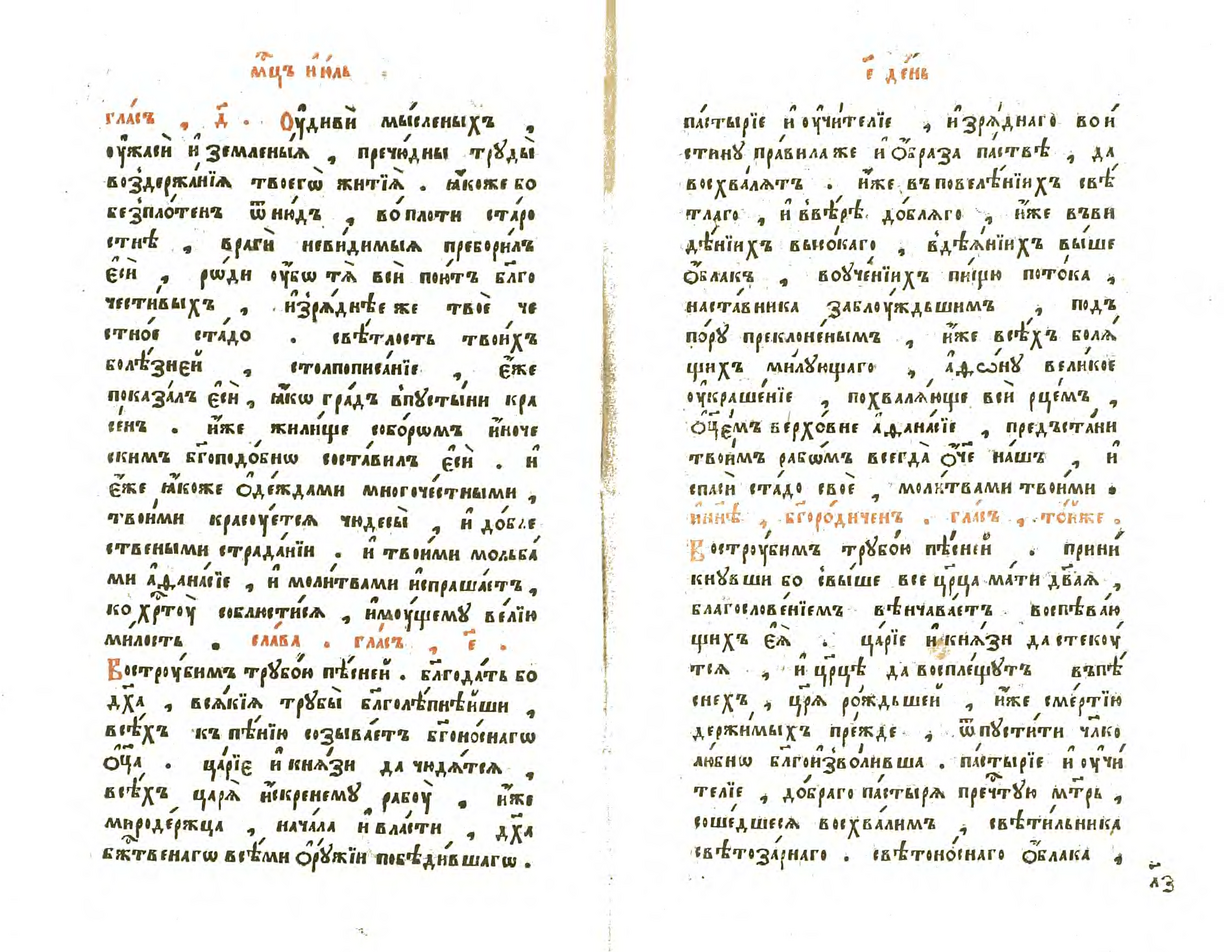 мц҃ъ і҆ю́ль
гла́съ , д҃ . Оу҆диви̏ мы́сленыхъ ,
оу҆жаси̏ и҆ земленыѧ , пречю́дны трꙋды̏
воздержа́нїѧ твоегѡ̏ житїѧ̏ . ꙗ҆́коже бо
без̾пло́тенъ ѿ ню́дъ , во́ плоти ста́ро
стнѣ , враги̏ неви́димыѧ преборилъ
є҆си̏ , рѡ́ди оу҆́бѡ тѧ̏ вси̏ пою́тъ бл҃го
чести́выхъ , и҆зрѧ́днѣе же твоѐ че
стно́е ста́до . свѣ́тлость твои́хъ
болѣ́зней , столпописа́нїе , є҆́же
показа́лъ є҆си̏ , ꙗ҆́кѡ гра́дъ в̾пꙋсты́ни кра
се́нъ . и҆́же жили́ще собо́рѡмъ и҆́ноче
скимъ бг҃оподо́бнѡ соста́вилъ є҆си̏ . и҆
є҆́же ꙗ҆́коже ѻ҆де́ждами многоче́стными ,
твои́ми красꙋ́етсѧ чюдесы̏ , и҆ до́бле
ствеными страда́нїи . и҆ твои́ми мольба́
ми а҆ѳана́сїе , и҆ моли́твами и҆спраша́етъ ,
ко хр҃тоу̏ соблюсти́сѧ , и҆мꙋ́щемꙋ ве́лїю
ми́лость . сла́ва . гла́съ , є҃ .
Востроу́бимъ трꙋбо́ю пѣ́сней . бл҃года́ть бо
дх҃а , всѧ́кїѧ трꙋбы̏ бл҃голѣ́пнѣйши ,
всѣ́хъ къ пѣ́нїю созыва́етъ бг҃оно́снагѡ
ѻ҆ц҃а . ца́рїе и҆ кнѧ́зи да чюдѧ́тсѧ ,
всѣ́хъ царѧ̏ и҆́скренемꙋ рабоу̏ , и҆́же
миродержца , нача́ла и҆ вла́сти , дх҃а
бж҃твенагѡ всѣ́ми ѻ҆рꙋ́жїи побѣди́вшагѡ .
є҃ де́нь
па́стырїе и҆ оу҆чи́телїе , и҆зрѧ́днаго вои́
стинꙋ пра́вила же и҆ ѻ҆́браза па́ствѣ , да
восхва́лѧтъ . и҆́же въ повелѣ́нїихъ свѣ́
тлаго , и҆ в̾вѣ́рѣ до́блѧго , и҆́же въ ви
дѣ́нїихъ высо́каго , в̾дѣѧ́нїихъ вы́ше
ѻ҆́блакъ , воучє́нїихъ пи́щю пото́ка ,
наста́вника заблоу́ждьшимъ , подъ
по́рꙋ преклоне́нымъ , и҆́же всѣ́хъ болѧ́
щихъ ми́лꙋющаго , а҆ѳѡ́нꙋ вели́кое
оу҆краше́нїе , похвалѧ́юще вси̏ рце́мъ ,
ѻ҆ц҃є́мъ верхо́вне а҆ѳана́сїе , предъста́ни
твои́мъ рабѡ́мъ всегда̏ ѻ҆́ч҃е на́шъ , и҆
спаси̏ ста́до своѐ , моли́твами твои́ми .
ны́нѣ , бг҃оро́диченъ . гла́съ , то́йже .
Востроу́бимъ трꙋбо́ю пѣ́сней . прини́
кнꙋвши бо свы́ше все цр҃ца ма́ти дв҃аѧ ,
благослове́нїемъ вѣнчава́етъ воспѣва́ю
щихъ є҆ѧ̏ . ца́рїе и҆ кнѧ́зи да стекоу́
тсѧ , и҆ цр҃цѣ да воспле́щꙋтъ въ пѣ́
снехъ , цр҃ѧ ро́ждьшей , и҆́же сме́ртїю
держи́мыхъ пре́жде , ѿпꙋсти́ти чл҃ко
любнѡ бл҃гоизво́ливша . па́стырїе и҆ оу҆чи́
телїе , до́браго па́стырѧ преч҃тꙋю мт҃рь ,
соше́дшесѧ восхва́лимъ , свѣти́льника
свѣтоза́рнаго . свѣтоно́снаго ѻ҆́блака ,
л҃з